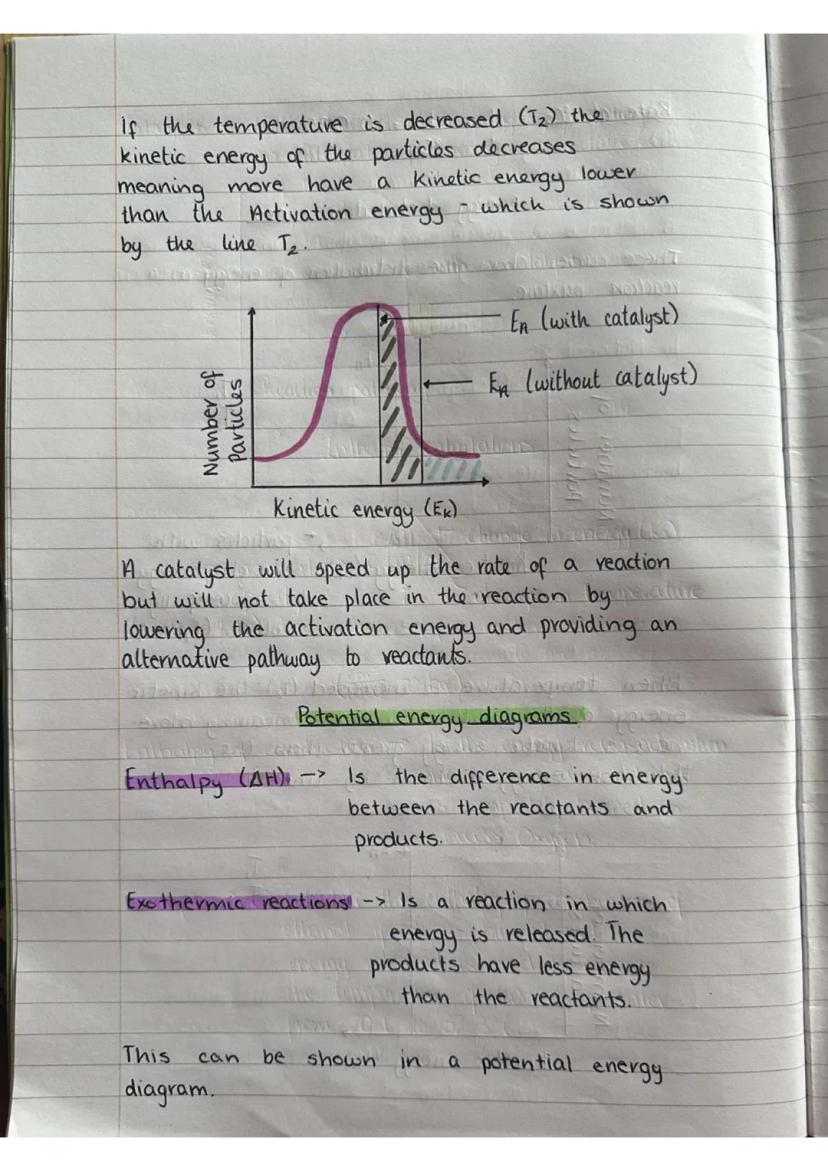 If the temperature is decreased (T₂) the
kinetic energy of the particles decreases
meaning more have a kinetic energy lower
than the Activation energy - which is shown
by the line T₂.
EA (with catalyst)
EA (without catalyst)
Number of
Particles
Kinetic energy (Eₖ)
A catalyst will speed up the rate of a reaction
but will not take place in the reaction by
lowering the activation energy and providing an
alternative pathway to reactants.
Potential energy diagrams
Enthalpy (ΔH) -> Is the difference in energy
between the reactants and
products.
Exothermic reactions -> Is a reaction in which
energy is released. The
products have less energy
than the reactants.
This can be shown in a potential energy
diagram.